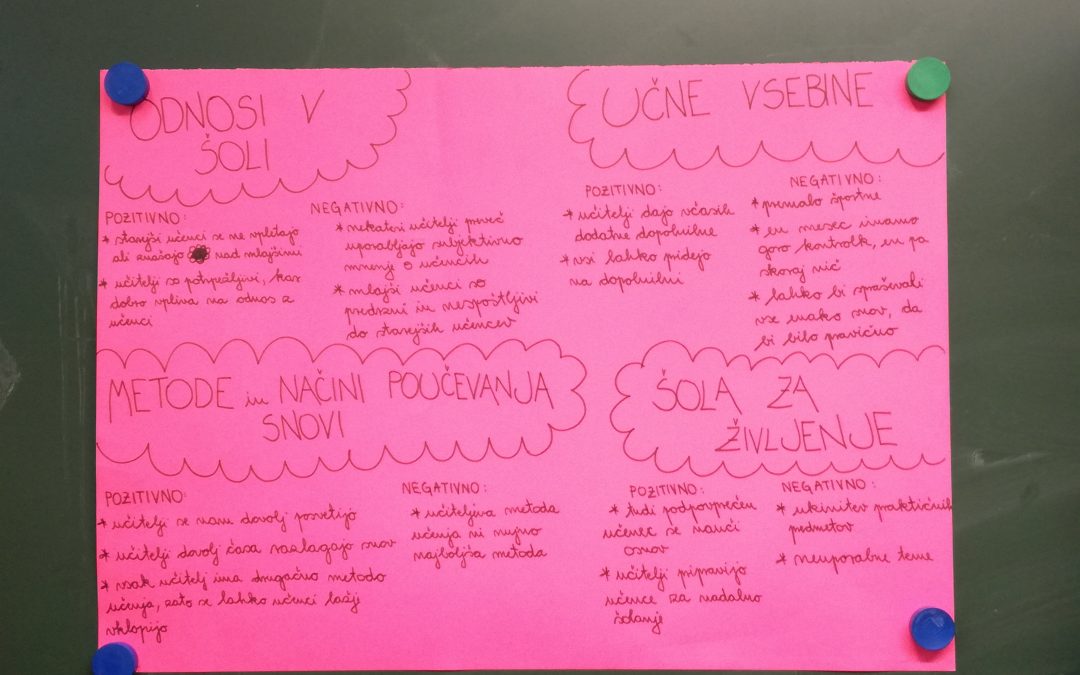 ODNOSI V
ŠOLI
POZITIVNO:
* starejši učenci se ne vpletajo
ali znašajo nad mlajšimi
* učitelji so potrpežljivi, kar
dobro vpliva na odnos z
učenci
NEGATIVNO:
* nekateri učitelji preveč
uporabljajo subjektivno
mnenje o učencih
* mlajši učenci so
predrzni in nespoštljivi
do starejših učencev
UČNE VSEBINE
POZITIVNO:
* učitelji dajo včasih
dodatne dopolnilne
* vsi lahko pridejo
na dopolnilni
NEGATIVNO:
* premalo športne
* en mesec imamo
goro kontrolk, en pa
skoraj nič
* lahko bi spraševali
vse enako snov, da
bi bilo pravično
METODE in NAČINI POUČEVANJA
SNOVI
POZITIVNO:
* učitelji se nam dovolj posvetijo
* učitelji dovolj časa razlagajo snov
* vsak učitelj ima drugačno metodo
učenja, zato se lahko učenci lažji
vklopijo
NEGATIVNO:
* učiteljiva metoda
učenja ni nujno
najboljša metoda
ŠOLA ZA
ŽIVLJENJE
POZITIVNO:
* tudi podpovprečen
učenec se nauči
osnov
* učitelji pripravijo
učence za nadalno
šolanje
NEGATIVNO:
* ukinitev praktičnih
predmetov
* neuporabne teme